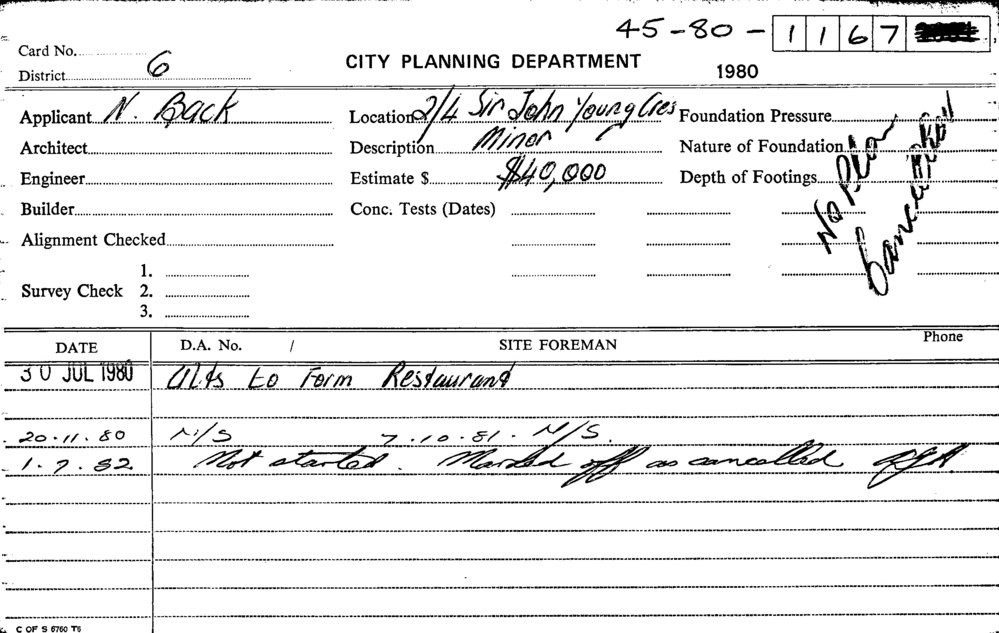 45-80-1167
Card No.
District 6
CITY PLANNING DEPARTMENT
1980
Applicant N. Back
Location 2/4 Sir John Young Cres
Foundation Pressure
Architect
Description Minor
Nature of Foundation
Engineer
Estimate $ $40,000
Depth of Footings
Builder
Conc. Tests (Dates)
No Plan
Alignment Checked
Survey Check
1.
2.
3.
DATE D.A. No. / SITE FOREMAN Phone
30 JUL 1980 Alts to Form Restaurant
20.11.80 N/S 7.10.81. N/S.
1.7.82 Not started. Marked off as cancelled
C OF S 6760 T6